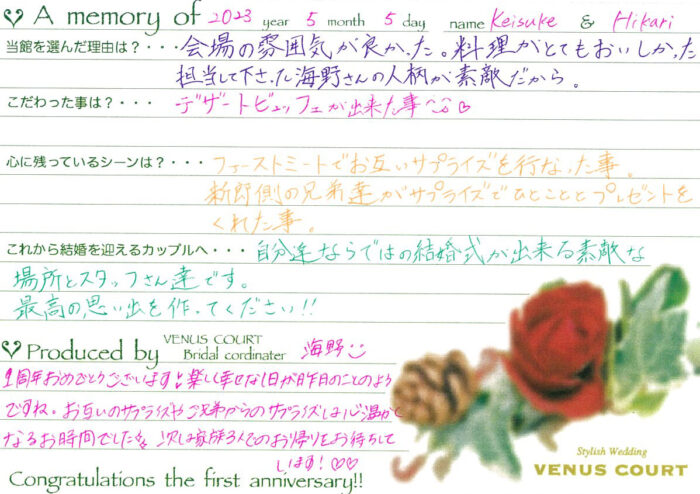 A memory of 2023 year 5 month 5 day name Keisuke & Hikari
当館を選んだ理由は？・・・会場の雰囲気が良かった。料理がとてもおいしかった
担当して下さった海野さんの人柄が素敵だから。
こだわった事は？・・・デザートビュッフェが出来た事
心に残っているシーンは？・・・ファーストミートでお互いサプライズを行なった事。
新郎側の兄弟達がサプライズでひとこととプレゼントを
くれた事。
これから結婚を迎えるカップルへ・・・自分達ならではの結婚式が出来る素敵な
場所とスタッフさん達です。
最高の思い出を作ってください!!
Produced by VENUS COURT Bridal cordinater 海野
1周年おめでとうございます♪楽しく幸せな1日が昨日のことのよう
ですね。お互いのサプライズやご兄弟からのサプライズは心温かく
なるお時間でした 次は家族3人でのお帰りをお待ちして
します!♡♡
Congratulations the first anniversary!!
Stylish Wedding
VENUS COURT